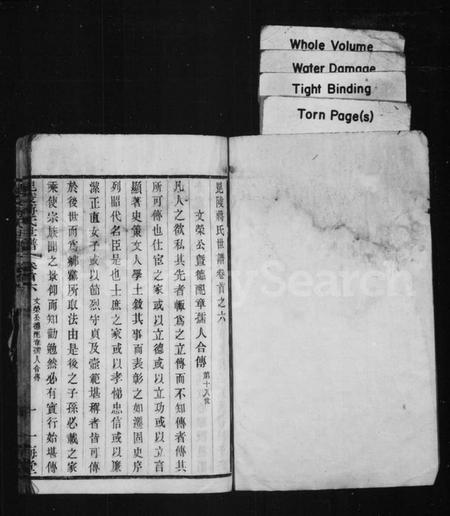 Whole Volume
Water Damage
Tight Binding
Torn Page(s)
毘陵蔣氏世譜卷首之六
文榮公暨德配章孺人合傳 第十八世
凡人之欲私其先者輒爲之立傳而不知傳者傳其
所可傳也仕宦之家或以立德或以立功或以立言
顯著史策文人學士敘其事而表彰之如漢固史序
列昭代名臣是也士庶之家或以孝悌忠信或以廉
潔正直女子或以節烈守貞及壼範堪稱者皆可傳
於後世而爲鄉黨所取法由是後之子孫必載之家
乘使宗族聞之景仰而知勸勉然必有實行始堪傳
卷首六 文榮公德配章孺人合傳 一 一梅堂